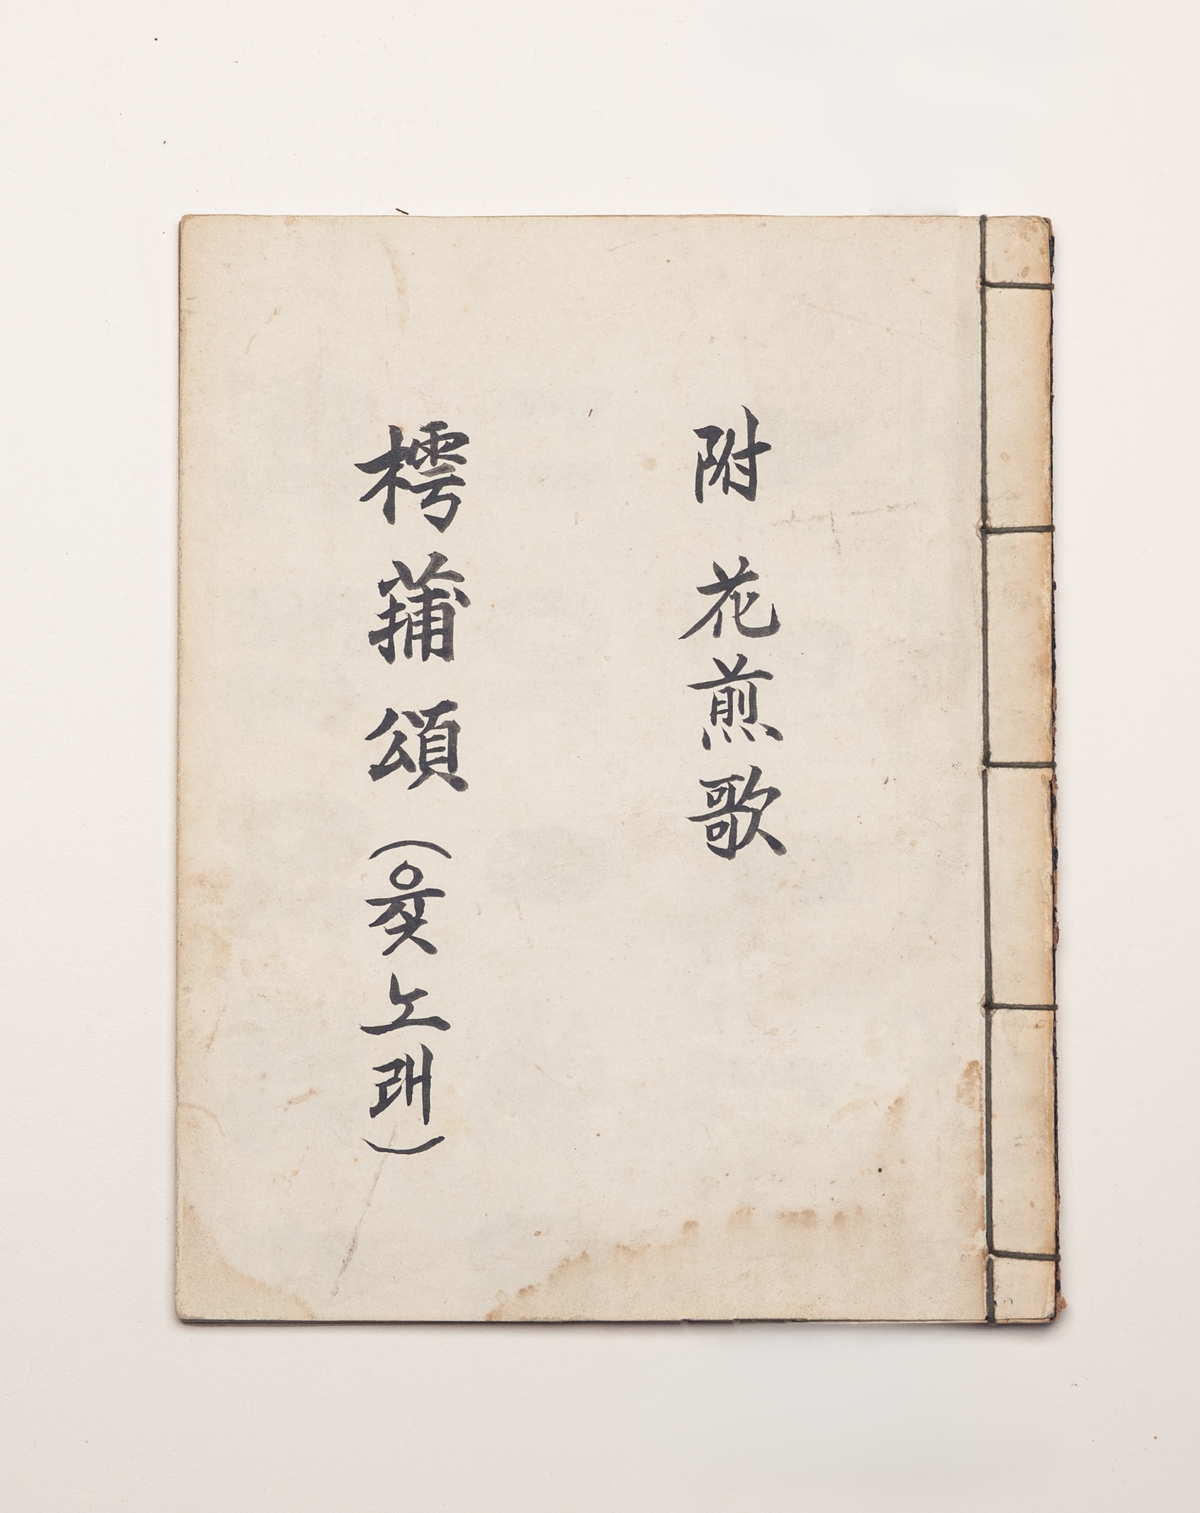 附 花煎歌
樗蒱頌(윷노래)